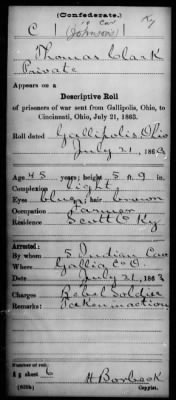 (Confederate.)
C | 10 Cav (Johnson's) | Ky
Thomas Clark
Private
Appears on a
Descriptive Roll
of prisoners of war sent from Gallipolis, Ohio, to
Cincinnati, Ohio, July 21, 1863.
Roll dated Gallipolis Ohio
July 21, 1863
Age 45 years; height 5 ft. 9 in.
Complexion light
Eyes blue; hair brown
Occupation Farmer
Residence Scott Co Ky
Arrested:
By whom 5 Indian Cav
Where Gallia Co O.
Date July 21, 1863
Charges Rebel Soldier
Remarks: Taken in action
Number of roll:
sheet 6
Copyist.